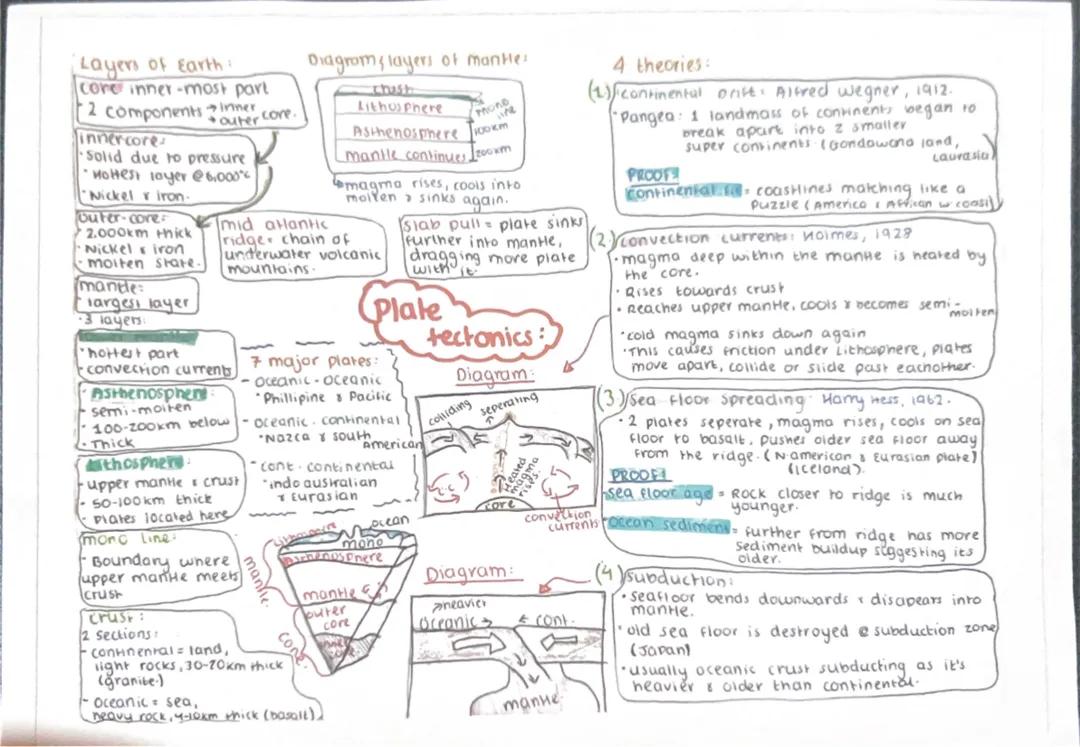 Layers of Earth:
core inner-most part
- 2 components → inner
→ outer core.
inner core:
• Solid due to pressure
• Hottest layer @ 6,000°c
• Nickel & iron.
outer-core:
• 2,000km thick
• Nickel & iron
• molten state.
mantle:
- largest layer
• 3 layers:
• hottest part
- convection currents
• Asthenosphere
- semi-molten
• 100-200km below
• Thick
Lithosphere
- upper mantle & crust
- 50-100km thick
- plates located here
mono line:
- Boundary where
upper mantle meets
crust
crust:
2 sections:
- continental = land,
light rocks, 30-70km thick
(granite)
- oceanic = sea,
heavy rock, 4-10km thick (basalt)
Diagram; layers of mantle:
crust
Lithosphere
Asthenosphere
mantle continues
mono
line
100km
200km
magma rises, cools into
molten & sinks again.
mid atlantic
ridge = chain of
underwater volcanic
mountains.
Slab pull = plate sinks
further into mantle,
dragging more plate
with it.
Plate
tectonics:
7 major plates:
- oceanic - oceanic
• Phillipine & Pacific
- oceanic - continental
• Nazca & south
American
- cont - continental
• indo australian
& Eurasian
Diagram:
colliding
seperating
Heated
magma
rises
c.c
core
convection
currents
Lithosphere
ocean
mono
Asthenosphere
mantle
outer
core
inner
core
mantle
core
Diagram:
→ heavier
oceanic →
← cont.
mantle
4 theories:
(1) continental Drift: Alfred Wegner, 1912.
• Pangea: 1 landmass of continents began to
break apart into 2 smaller
super continents (Gondawana land,
Laurasia)
PROOF:
continental fit = coastlines matching like a
puzzle (America & African w coast)
(2) convection currents: Holmes, 1928
• magma deep within the mantle is heated by
the core.
• Rises towards crust
• Reaches upper mantle, cools & becomes semi-
molten
• cold magma sinks down again
• This causes friction under Lithosphere, plates
move apart, collide or slide past eachother.
(3) Sea Floor Spreading: Harry Hess, 1962.
• 2 plates seperate, magma rises, cools on sea
floor to basalt, pushes older sea floor away
from the ridge. (N.american & Eurasian plate)
(Iceland).
PROOF:
sea floor age = Rock closer to ridge is much
younger.
ocean sediment = further from ridge has more
sediment buildup suggesting its
older.
(4) subduction:
• seafloor bends downwards & disapears into
mantle.
• old sea floor is destroyed @ subduction zone
(Japan)
• usually oceanic crust subducting as it's
heavier & older than continental.